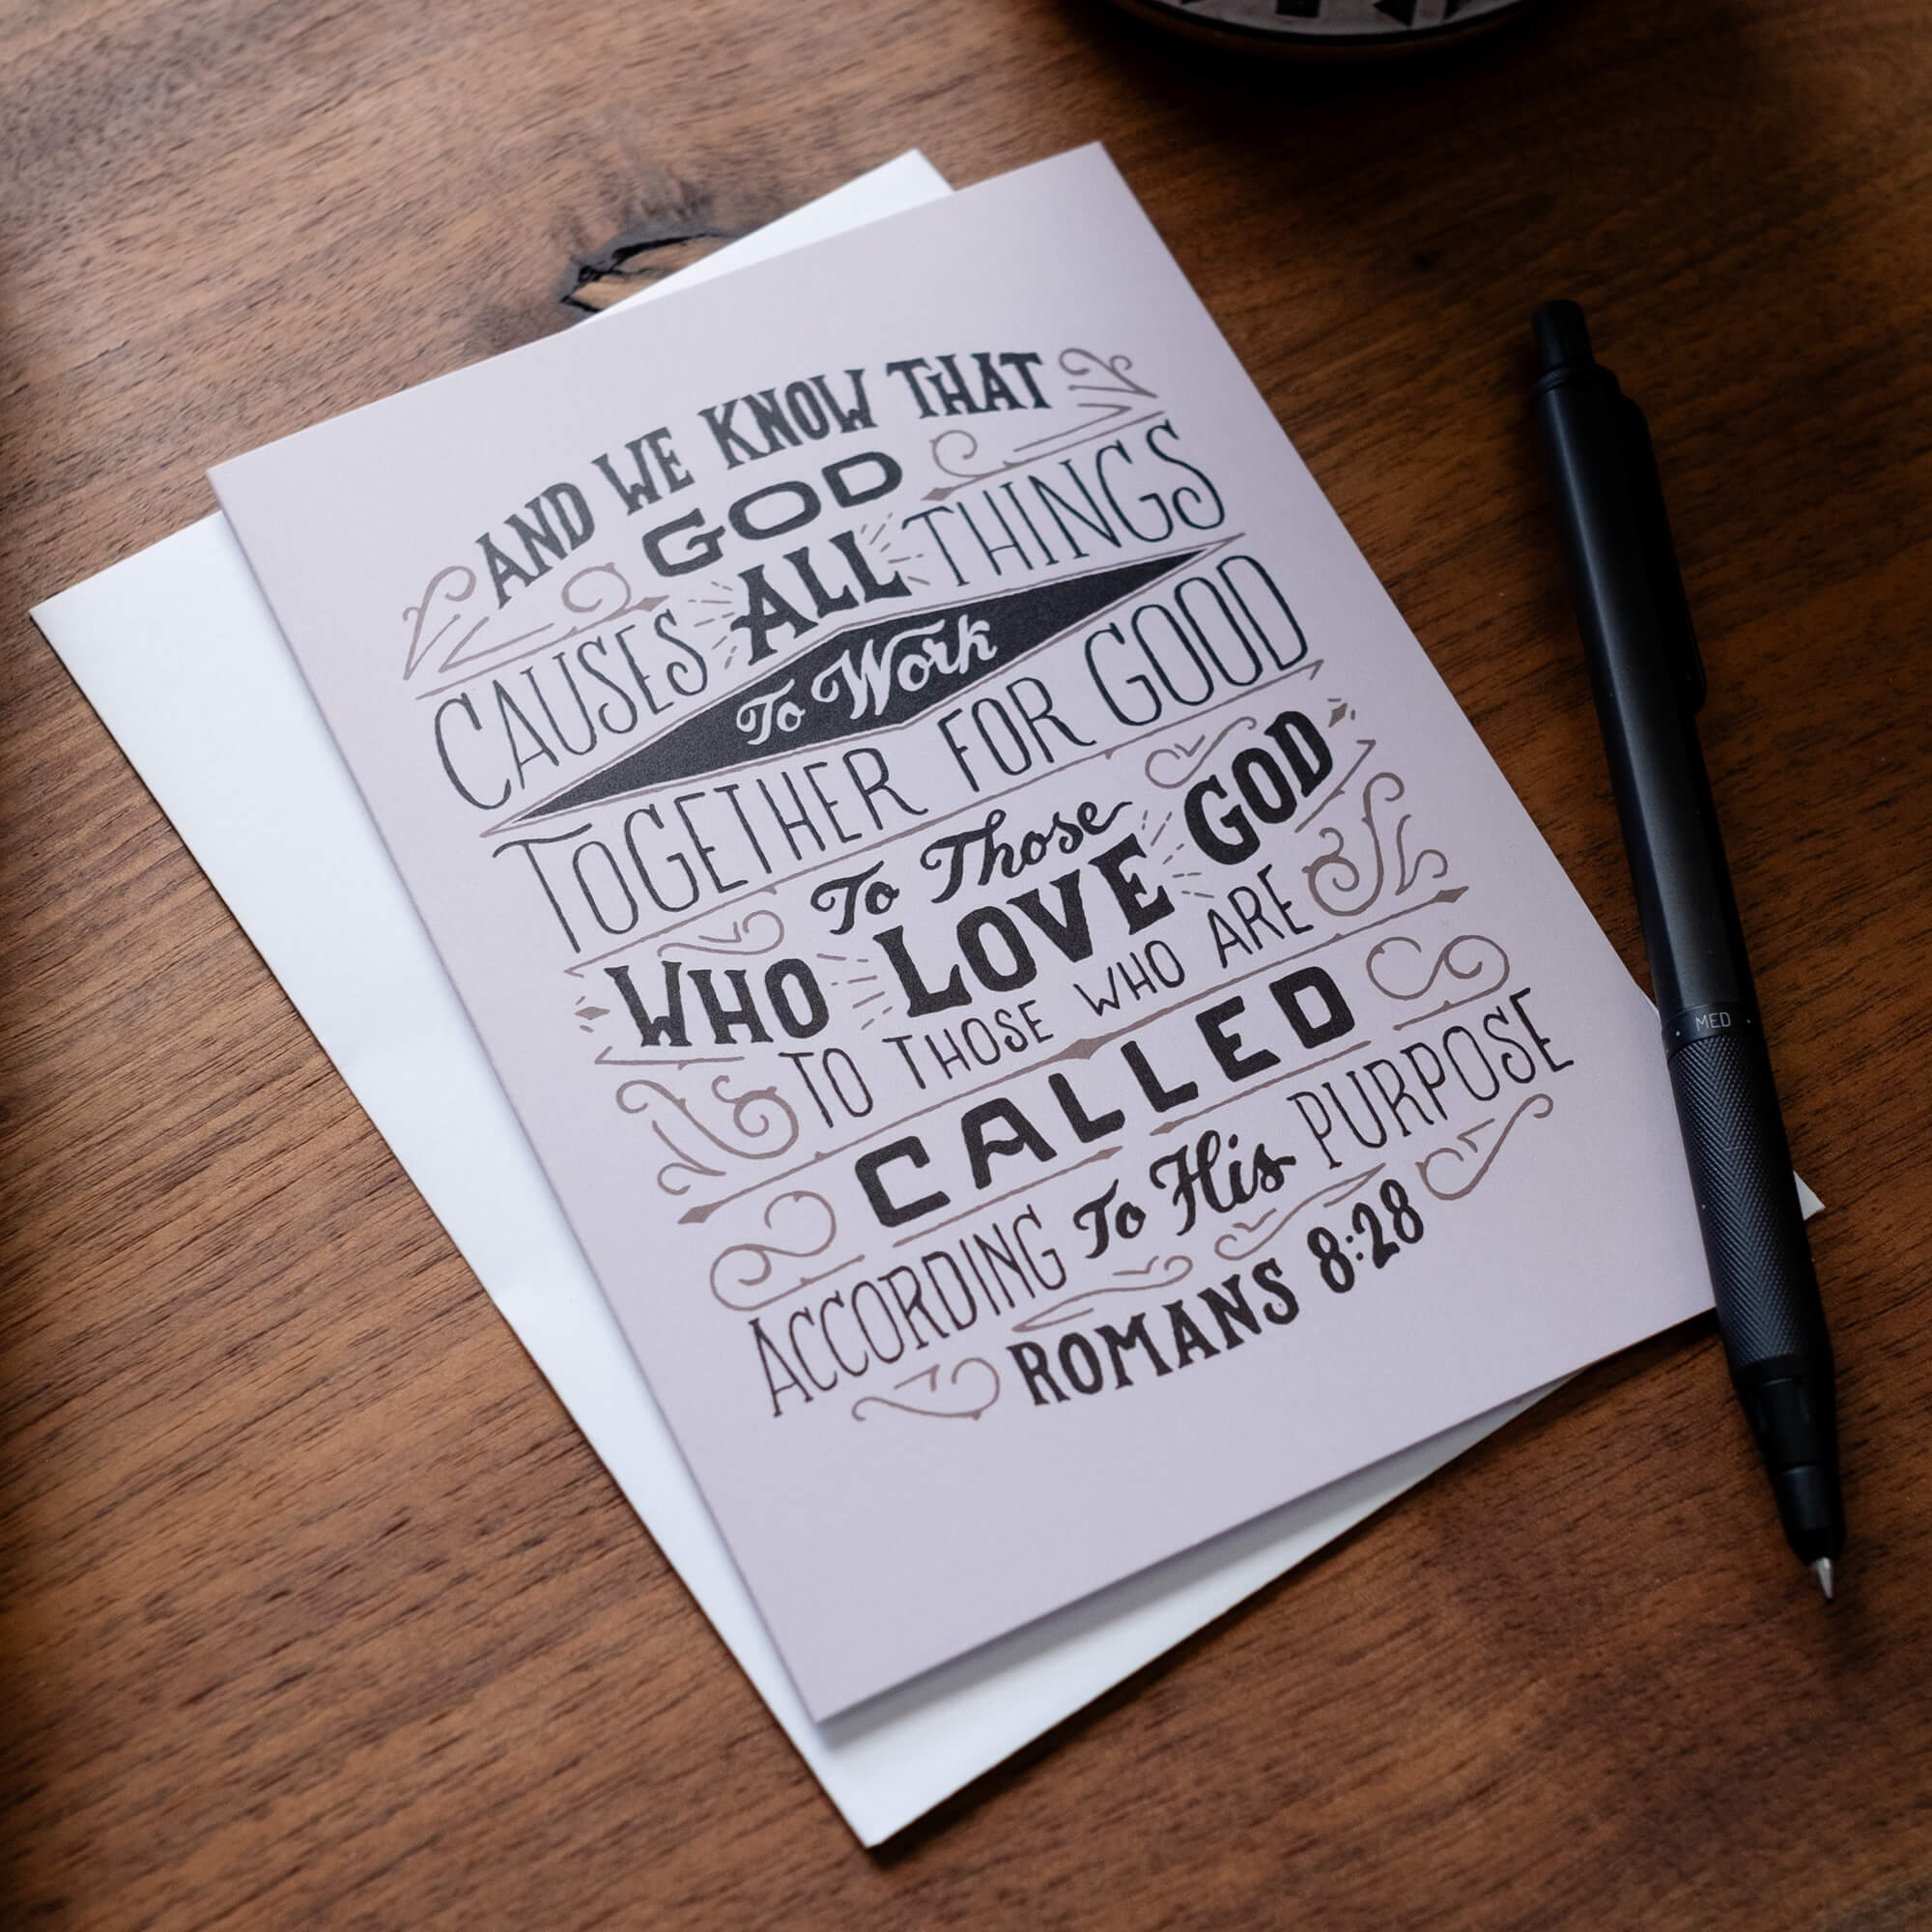 AND WE KNOW THAT
GOD
CAUSES ALL THINGS
To Work
TOGETHER FOR GOOD
To Those
WHO LOVE GOD
TO THOSE WHO ARE
CALLED
ACCORDING To His PURPOSE
ROMANS 8:28
MED